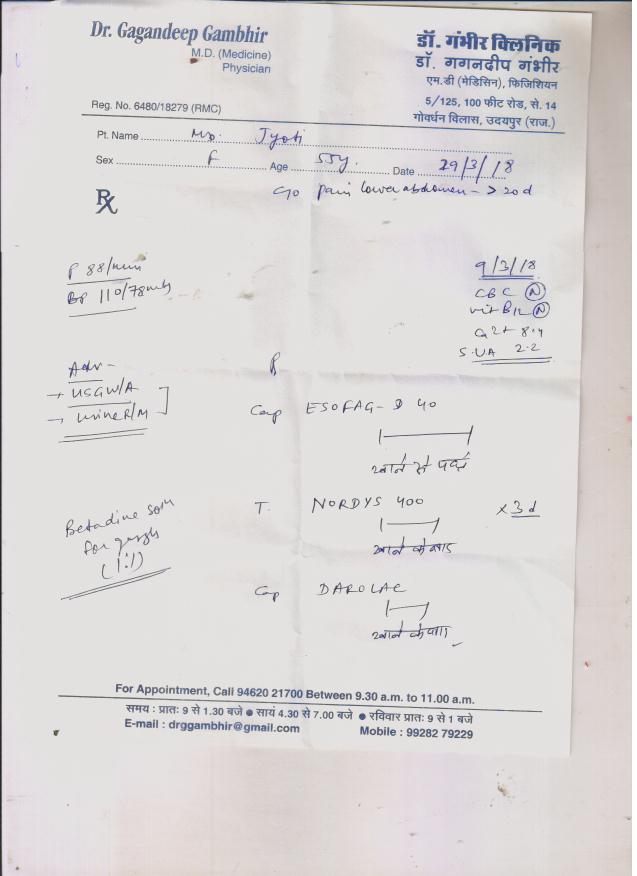 Dr. Gagandeep Gambhir
M.D. (Medicine)
Physician
Reg. No. 6480/18279 (RMC)
डॉ. गंभीर क्लिनिक
डॉ. गगनदीप गंभीर
एम.डी (मेडिसिन), फिजिशियन
5/125, 100 फीट रोड, से. 14
गोवर्धन विलास, उदयपुर (राज.)
Pt. Name Jyoti
Sex F Age 55y. Date 29/3/18
Rx
C/o pain lower abdomen -> 20d
P 88/min
BP 110/78
9/3/18
CBC N
vit B12 N
Ca2+ 8.4
S.UA 2.2
Adv -
→ USG W/A
→ urine R/M
R
Cap ESOFAG-D 40
खाने से पहले
T. NORDYS 400 x 3d
खाने के बाद
Betadine soln
for gargle
(1:1)
Cap DAROLAC
खाने के बाद
For Appointment, Call 94620 21700 Between 9.30 a.m. to 11.00 a.m.
समय : प्रातः 9 से 1.30 बजे ● सायं 4.30 से 7.00 बजे ● रविवार प्रातः 9 से 1 बजे
E-mail : drggambhir@gmail.com Mobile : 99282 79229